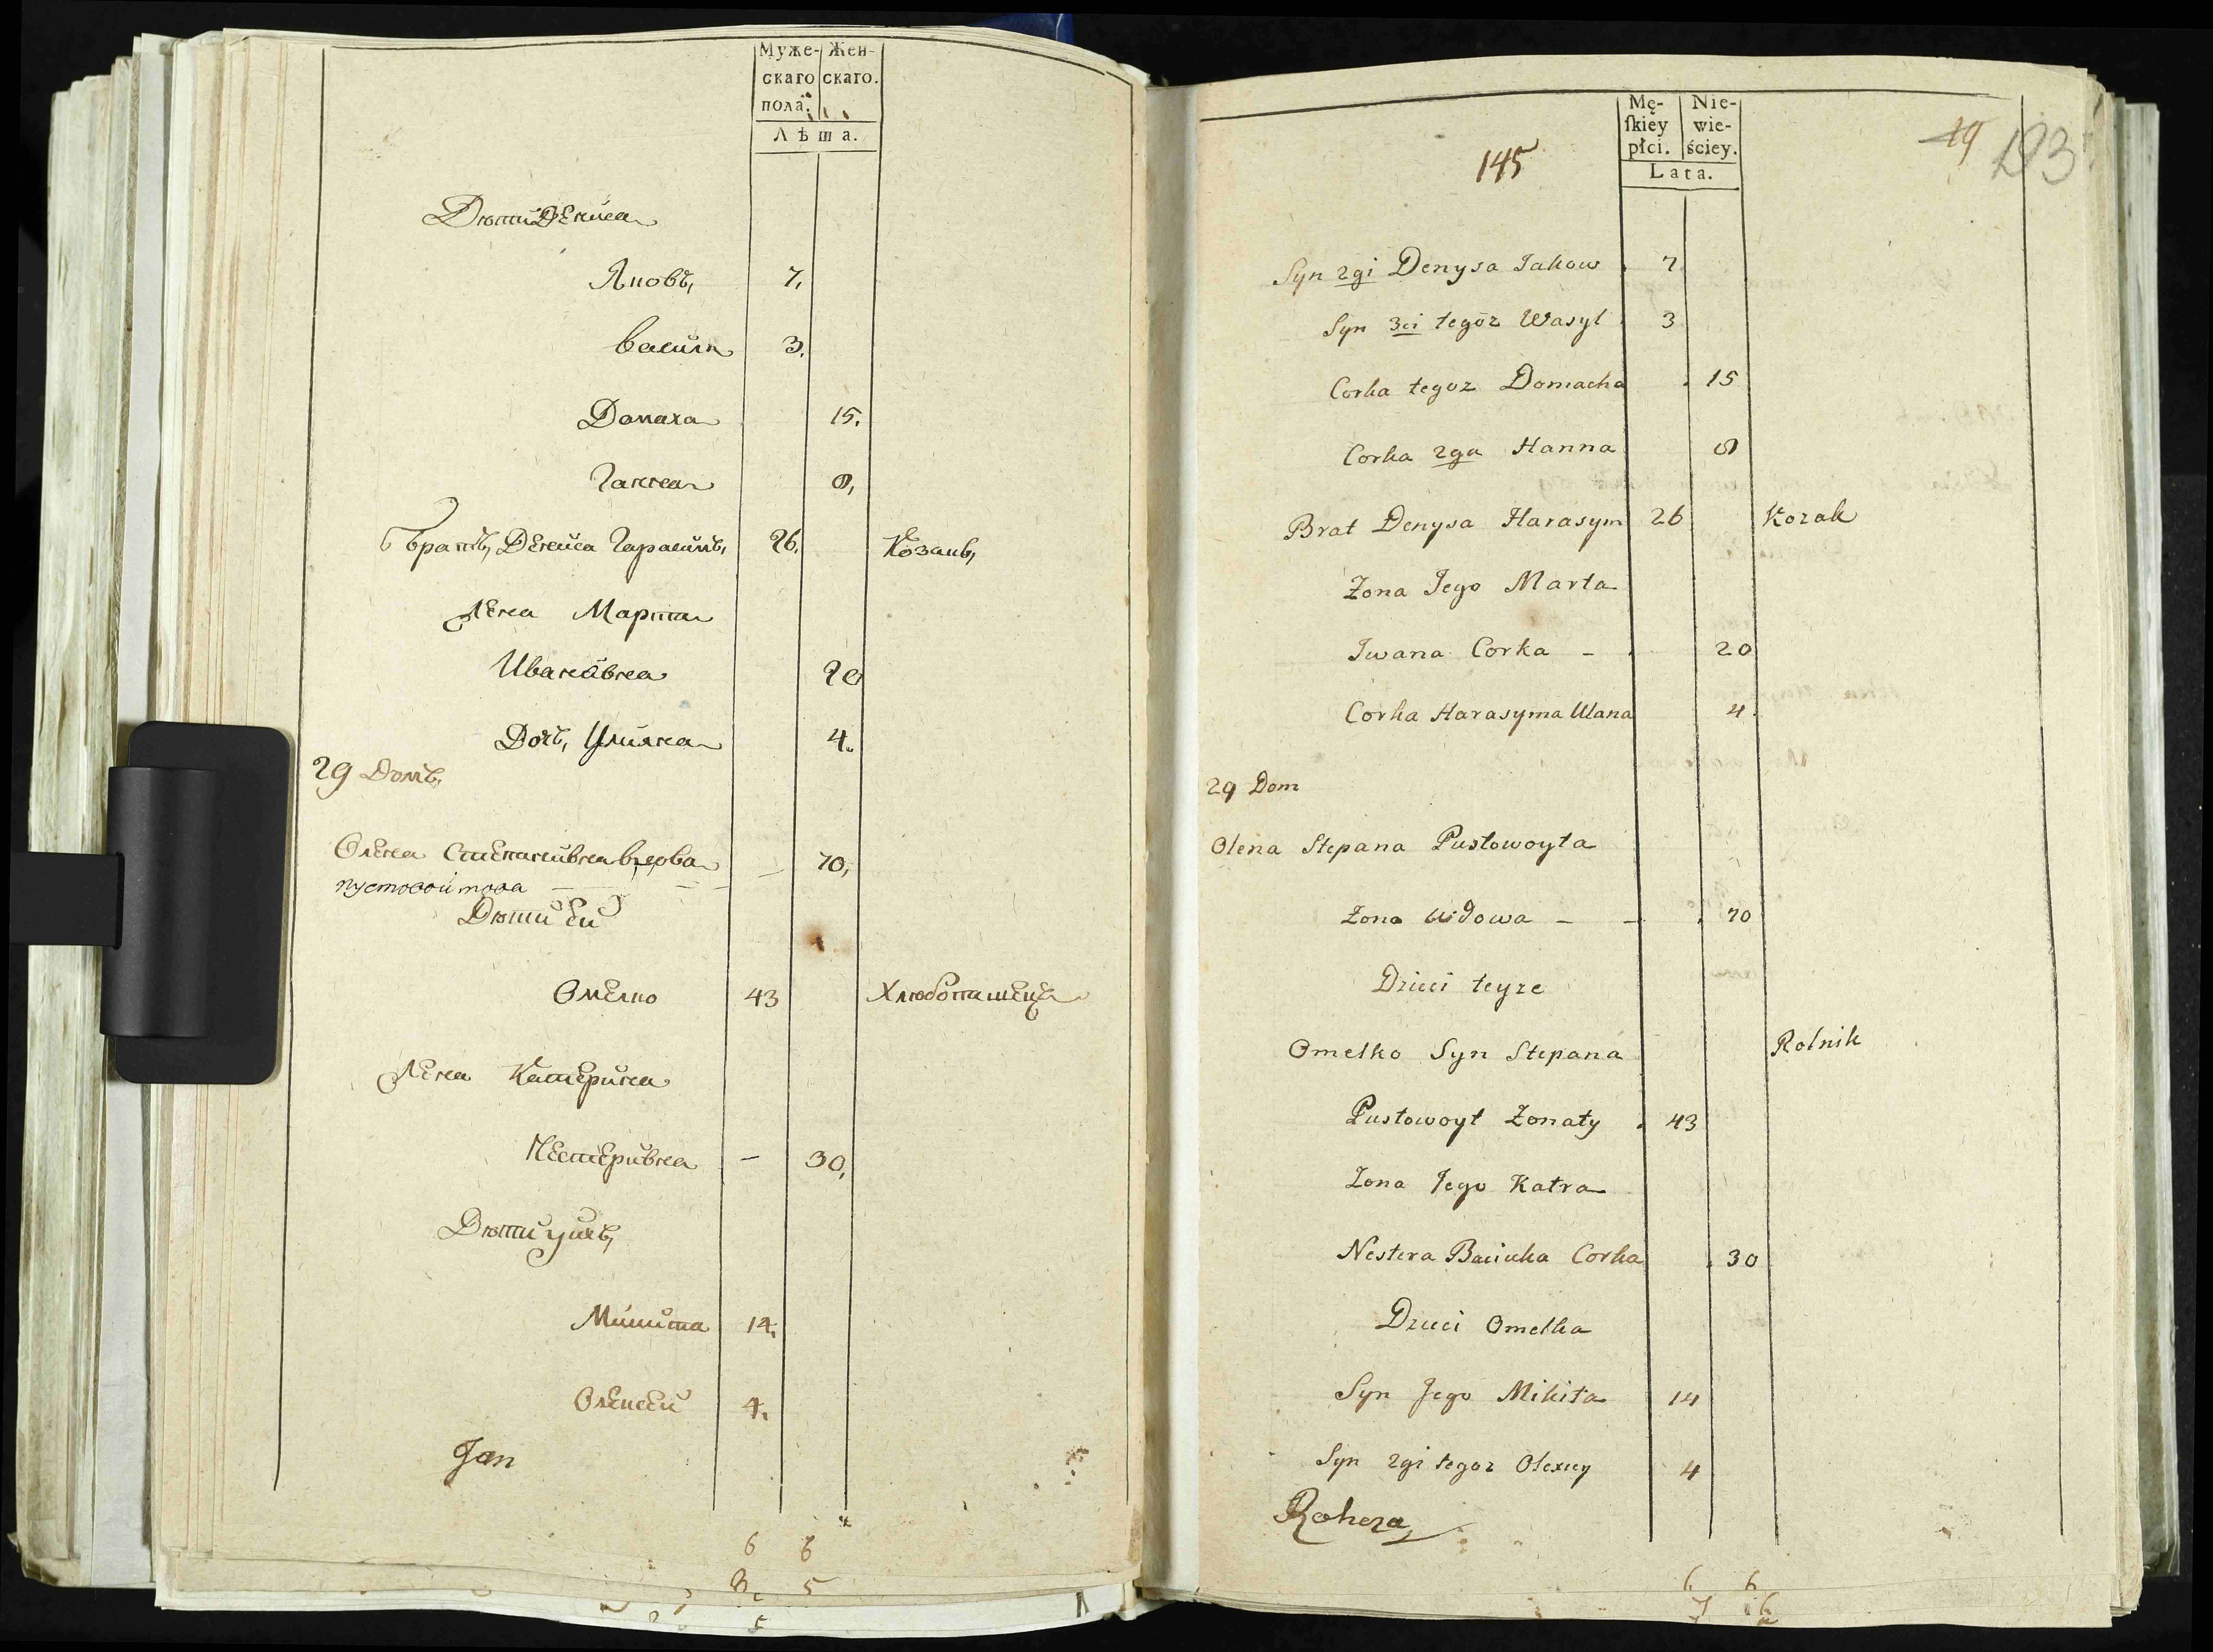 Муже- Жен-
скаго скаго.
пола.
Лѣта.
Дѣти Дениса
Яковъ, 7,
Василь 3.
Домаха 15.
Ганна 8,
Братъ, Дениса Гарасимъ, 26. Козакъ,
Жена Марта
Ивановна 20
Дочъ, Улияна 4.
29 Домъ,
Олена Степановна вдова 70,
пустовойтова
Дѣти Ей
Омелко 43 Хлѣбопашецъ
Жена Катерина
Нестеривна - 30,
Дѣти у ихъ,
Микита 14,
Олексей 4,
Jan
6 6
5
145
Mę- Nie-
ſkiéy wie-
płci. ściey.
Lata.
49 193
Syn 2gi Denysa Jakow 7
Syn 3ci tegoż Wasyl 3
Corka tegoz Domacha 15
Corka 2ga Hanna 8
Brat Denysa Harasym 26 Kozak
Żona Jego Marta
Jwana Corka - 20
Corka Harasyma Ulana 4
29 Dom
Olena Stepana Pustowoyta
Żona wdowa - - 70
Dzieci teyze
Omelko Syn Stepana Rolnik
Pustowoyt Żonaty 43
Żona Jego Katra
Nestera Corka 30
Dzieci Omelka
Syn Jego Mikita 14
Syn 2gi tegoz Olexiey 4
Rohoza
6 6
7 6